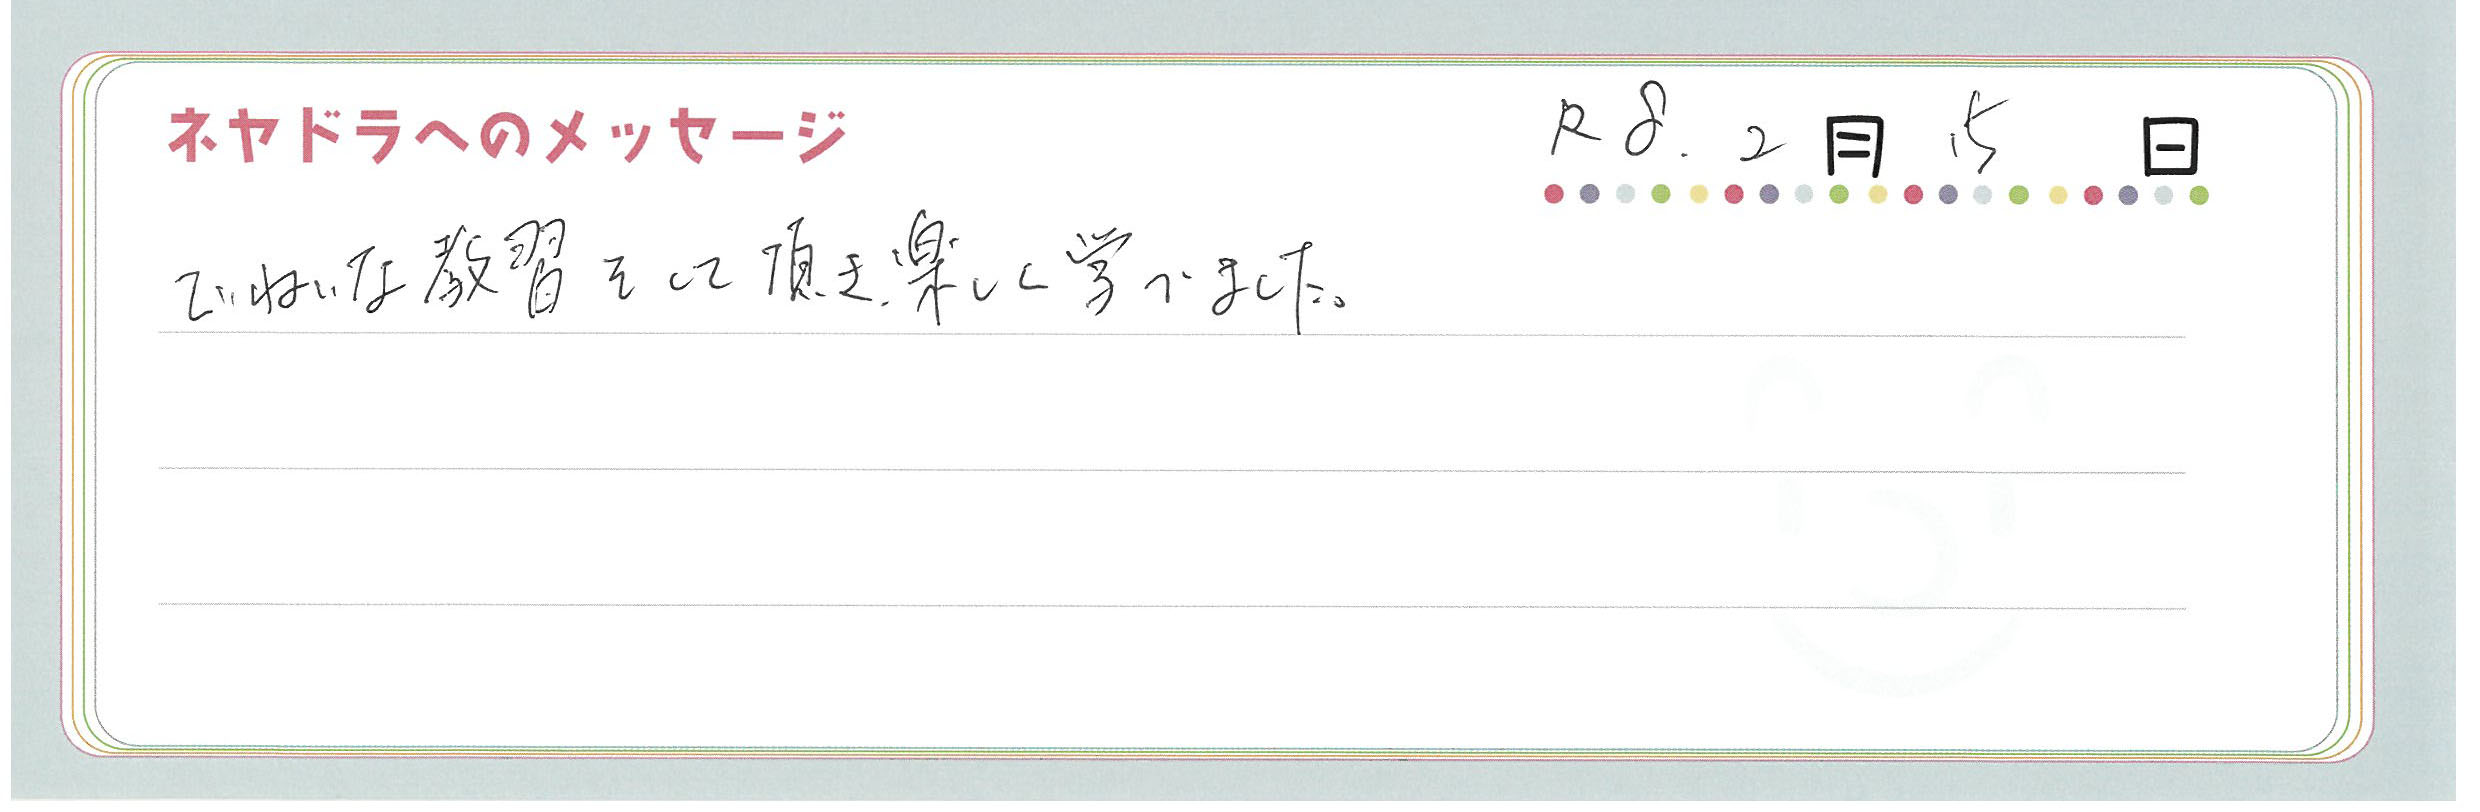 ネヤドラへのメッセージ
R8. 2月 15日
ていねいな教習をして頂き、楽しく学べました。